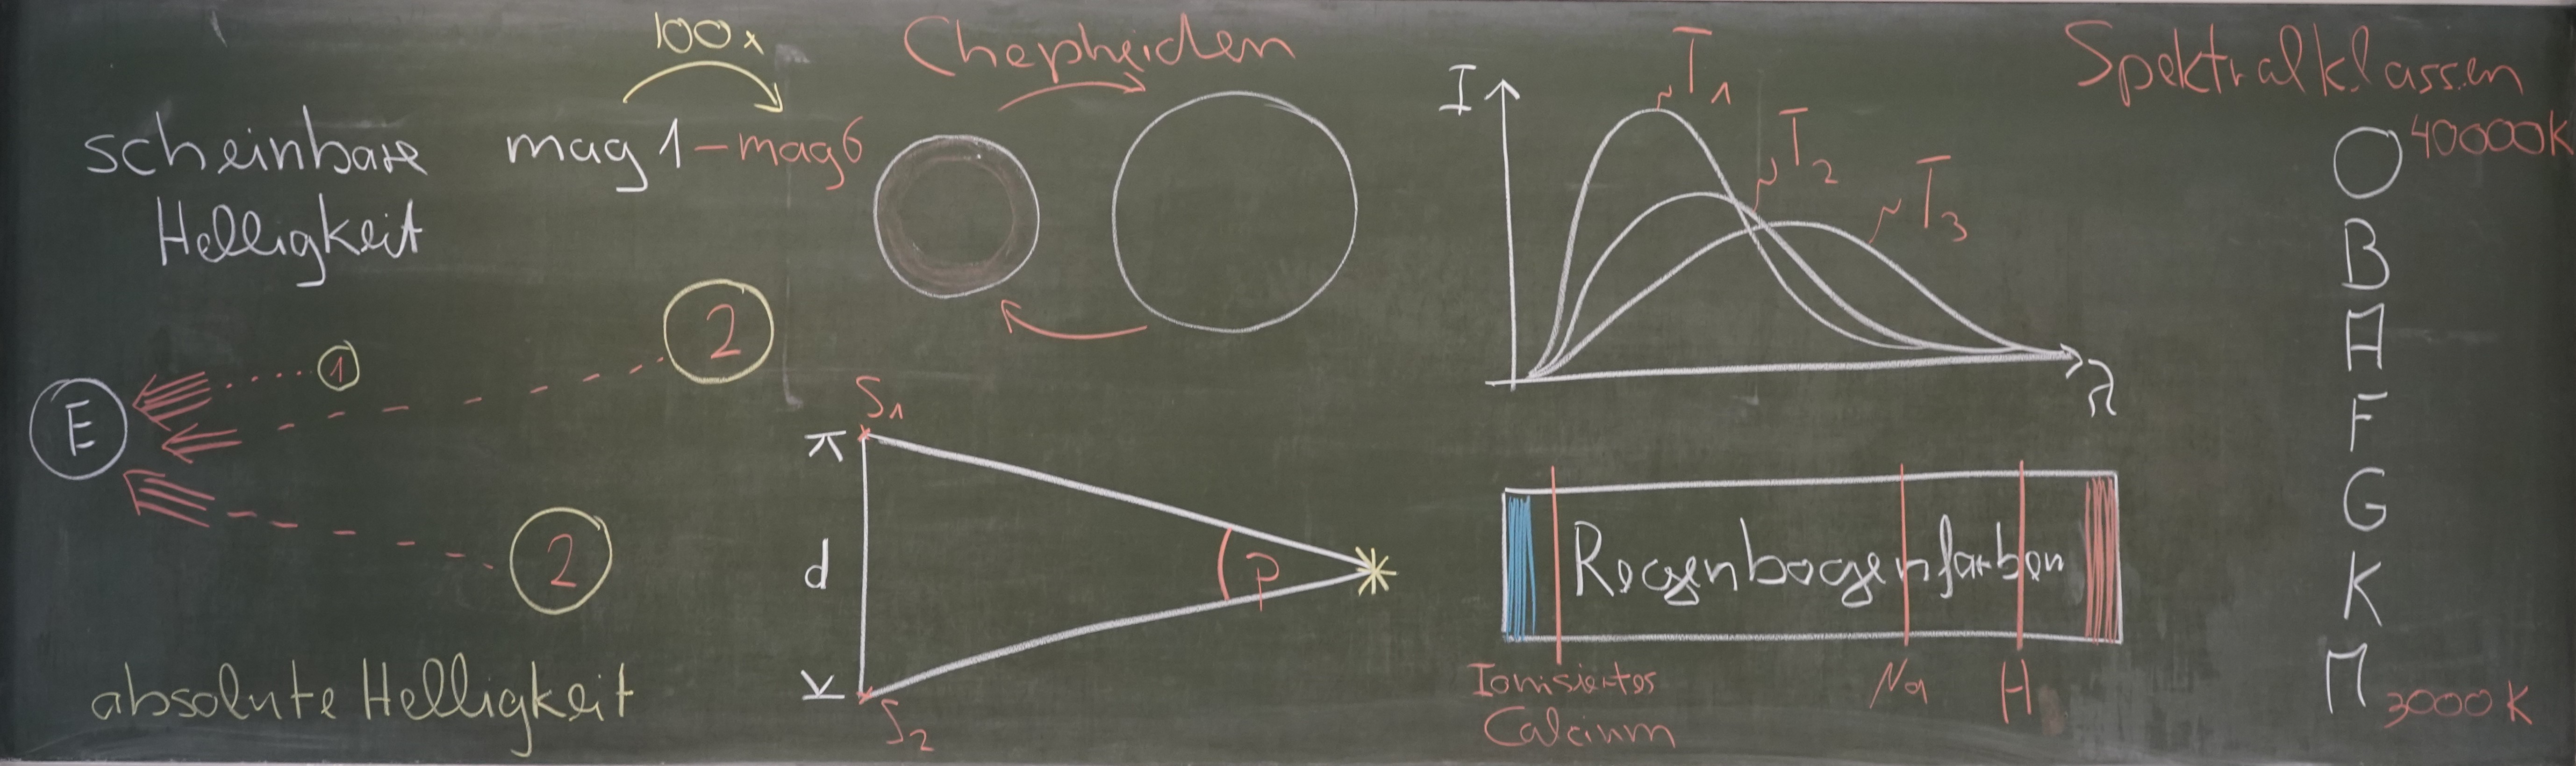 scheinbare
Helligkeit
100x
mag 1 – mag 6
E
1
2
2
absolute Helligkeit
Chepheiden
S1
d
p
S2
I
T1
T2
T3
λ
Regenbogenfarben
Ionisiertes
Calcium
Na
H
Spektralklassen
O 40000K
B
A
F
G
K
M 3000K